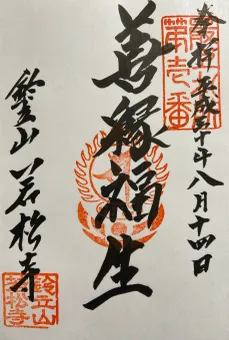 奉拝 平成三十年八月十四日
第壱番
善縁福生
鈴立山 若松寺
鈴立山
若松寺